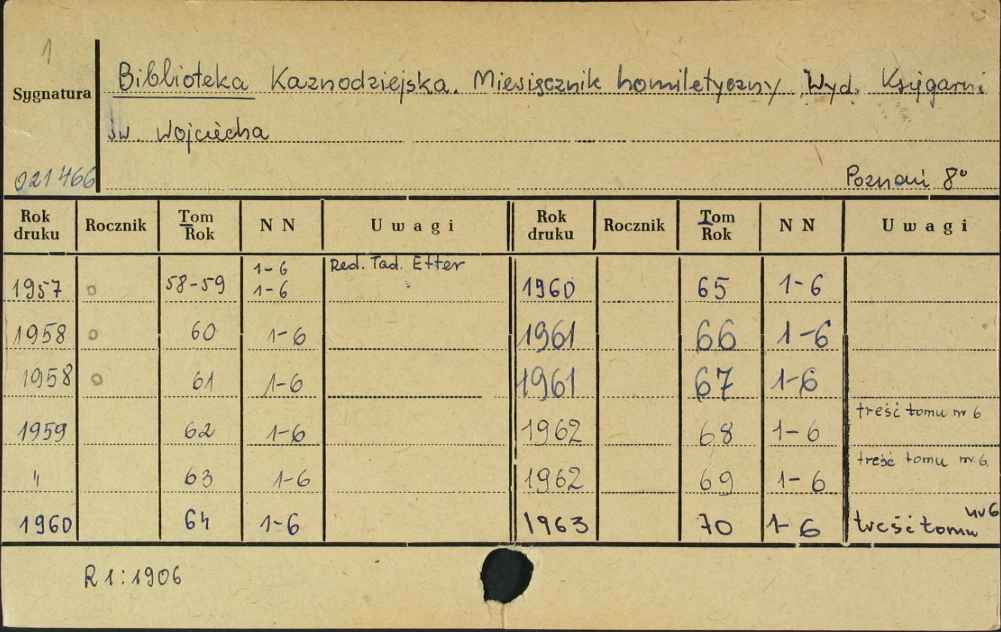 1
Sygnatura
Biblioteka Kaznodziejska. Miesięcznik homiletyczny Wyd. Księgarni
św. Wojciecha
021466
Poznań 8°
Rok druku Rocznik Tom Rok N N Uwagi Rok druku Rocznik Tom Rok N N Uwagi
1957 o 58-59 1-6 1-6 Red. Tad. Etter 1960 65 1-6
1958 o 60 1-6 1961 66 1-6
1958 o 61 1-6 1961 67 1-6
1959 62 1-6 1962 68 1-6 treść tomu nr 6
" 63 1-6 1962 69 1-6 treść tomu nr. 6.
1960 64 1-6 1963 70 1-6 treść tomu nr 6
R 1:1906